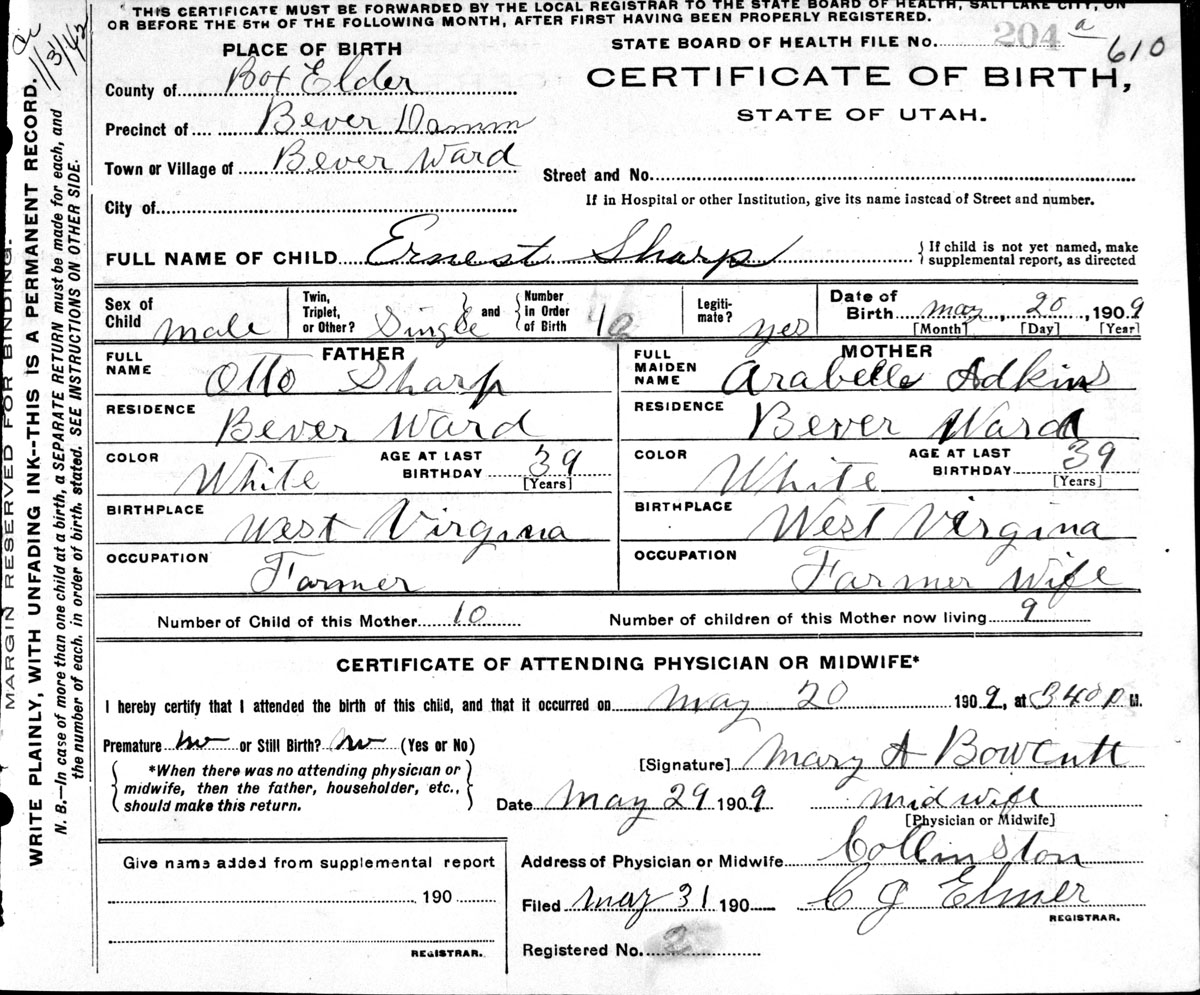 THIS CERTIFICATE MUST BE FORWARDED BY THE LOCAL REGISTRAR TO THE STATE BOARD OF HEALTH, SALT LAKE CITY, ON
OR BEFORE THE 5TH OF THE FOLLOWING MONTH, AFTER FIRST HAVING BEEN PROPERLY REGISTERED.
1/31/42
MARGIN RESERVED FOR BINDING.
WRITE PLAINLY, WITH UNFADING INK--THIS IS A PERMANENT RECORD.
N. B.—In case of more than one child at a birth, a SEPARATE RETURN must be made for each, and
the number of each, in order of birth, stated. SEE INSTRUCTIONS ON OTHER SIDE.
PLACE OF BIRTH
STATE BOARD OF HEALTH FILE No. 204 a 610
CERTIFICATE OF BIRTH,
STATE OF UTAH.
County of Box Elder
Precinct of Bever Damm
Town or Village of Bever Ward
Street and No.
City of
If in Hospital or other Institution, give its name instead of Street and number.
FULL NAME OF CHILD Ernest Sharp
{ If child is not yet named, make
supplemental report, as directed
Sex of Child male
Twin, Triplet, or Other? Single } and { Number in Order of Birth 10
Legiti-mate? yes
Date of Birth may, 20, 1909
[Month] [Day] [Year]
FATHER
FULL NAME Otto Sharp
RESIDENCE Bever Ward
COLOR White
AGE AT LAST BIRTHDAY 39
[Years]
BIRTHPLACE West Virgina
OCCUPATION Farmer
MOTHER
FULL MAIDEN NAME Arabelle Adkins
RESIDENCE Bever Ward
COLOR White
AGE AT LAST BIRTHDAY 39
[Years]
BIRTHPLACE West Virgina
OCCUPATION Farmer Wife
Number of Child of this Mother 10 Number of children of this Mother now living 9
CERTIFICATE OF ATTENDING PHYSICIAN OR MIDWIFE*
I hereby certify that I attended the birth of this child, and that it occurred on may 20 1909, at 340 p M.
Premature no or Still Birth? no (Yes or No)
{ *When there was no attending physician or
midwife, then the father, householder, etc.,
should make this return. }
[Signature] Mary A Bowcutt
Date May 29 1909 midwife
[Physician or Midwife]
Give name added from supplemental report
190
REGISTRAR.
Address of Physician or Midwife Collinston
Filed may 31 190 C J Elmer
REGISTRAR.
Registered No. 2